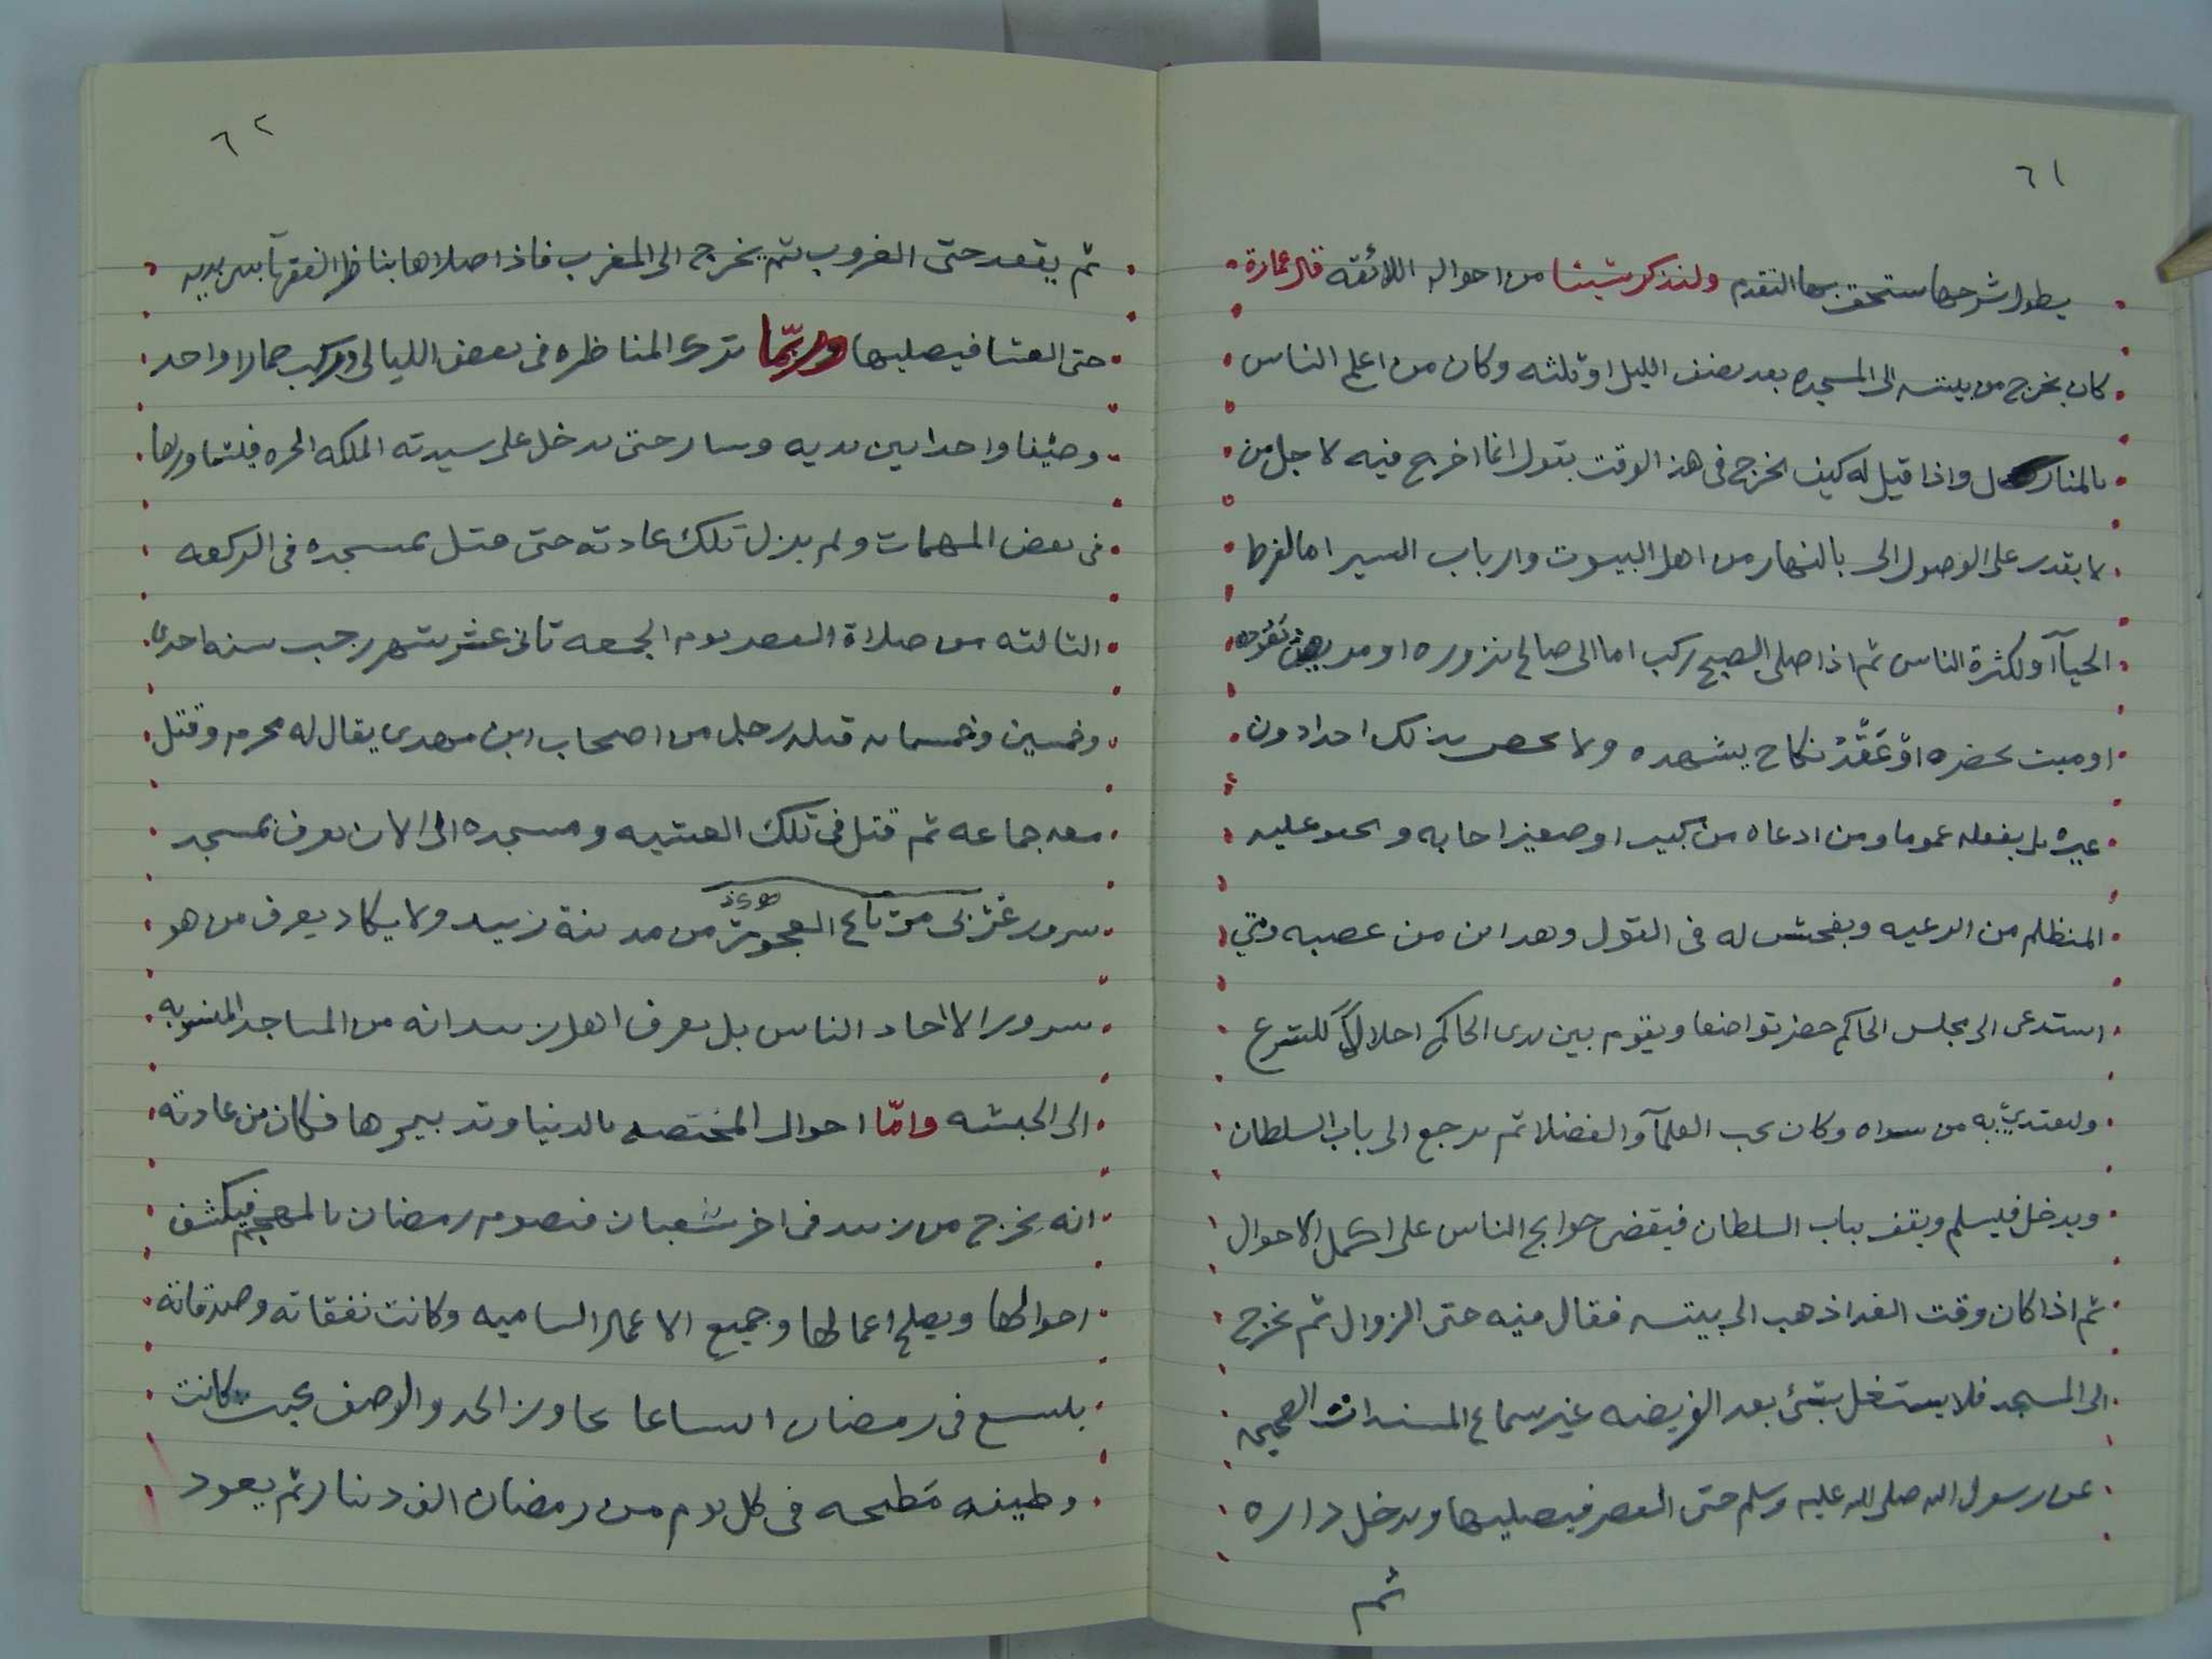 ٦١
يطول شرحها ستحق بها التقدم ولنذكر شيئا من احواله اللائقه قال عمارة
كان يخرج من بيته الى المسجد بعد نصف الليل او ثلثه وكان من اعلم الناس
بالمنازل واذا قيل له كيف تخرج فى هذا الوقت يقول انما اخرج فيه لاجل من
لا يقدر على الوصول الى بالنهار من اهل البيوت وارباب السير اما لفرط
الحيآ او لكثرة الناس ثم اذا صلى الصبح ركب اما الى صالح يزوره او مريض
او ميت يحضره او عَقْدُ نكاح يشهده ولا يخص بذلك احدا دون
غيره بل يفعله عموما ومن ادعاه من كبير او صغير اجابه و عليه
المتظلم من الرعيه ويفحش له فى القول وهو امن من عصبه ومتي
استدعى الى مجلس الحاكم حضر تواضعا ويقوم بين يدى الحاكم اجلالا للشرع
وليقتدي به من سواه وكان يحب العلمآ والفضلا ثم يرجع الى باب السلطان
ويدخل فيسلم ويقف بباب السلطان فيقضى حوايج الناس على اكمل الاحوال
ثم اذا كان وقت الغدا ذهب الى بيته فقال فيه حتى الزوال ثم يخرج
الى المسجد فلا يشتغل بشئ بعد الفريضه غير سماع المسندات الصحيحه
عن رسول الله صلى الله عليه وسلم حتى العصر فيصليها ويدخل داره
ثم
٦٢
ثم يقعد حتى الغروب ثم يخرج الى المغرب فاذا صلاها يناظر الفقهآ بين يديه
حتى العشا فيصليها وربّما ترك المناظره فى بعض الليالى وركب حمارا واحد
وصيفا واحدا بين يديه وسار حتى يدخل على سيدته الملكه الحره فيتشاورها
فى بعض المهمات ولم يزل تلك عادته حتى قتل بمسجده فى الركعه
الثالثه من صلاة العصر يوم الجمعه ثانى عشر شهر رجب سنه احدى
وخمسين وخمسمايه قتله رجل من اصحاب ابن مهدى يقال له محرم وقتل
معه جماعه ثم قتل فى تلك العشيه ومسجده الى الان يعرف بمسجد
سرور غربى من مدينة زبيد ولا يكاد يعرف من هو
سرور الا احاد الناس بل يعرف اهل زبيد انه من المساجد المنسوبه
الى الحبشه وامّا احوال المختصه بالدنيا وتدبيرها فكان من عادته
انه يخرج من زبيد فى اخر شعبان فيصوم رمضان بالمهجم فيكشف
احوالها ويصلح اعمالها وجميع الاعمال الساميه وكانت نفقاته وصدقاته
يتسع فى رمضان اتساعا يجاوز الحد والوصف بحيث كانت
وظيفه مَطبخه فى كل يوم من رمضان الف دينار ثم يعود